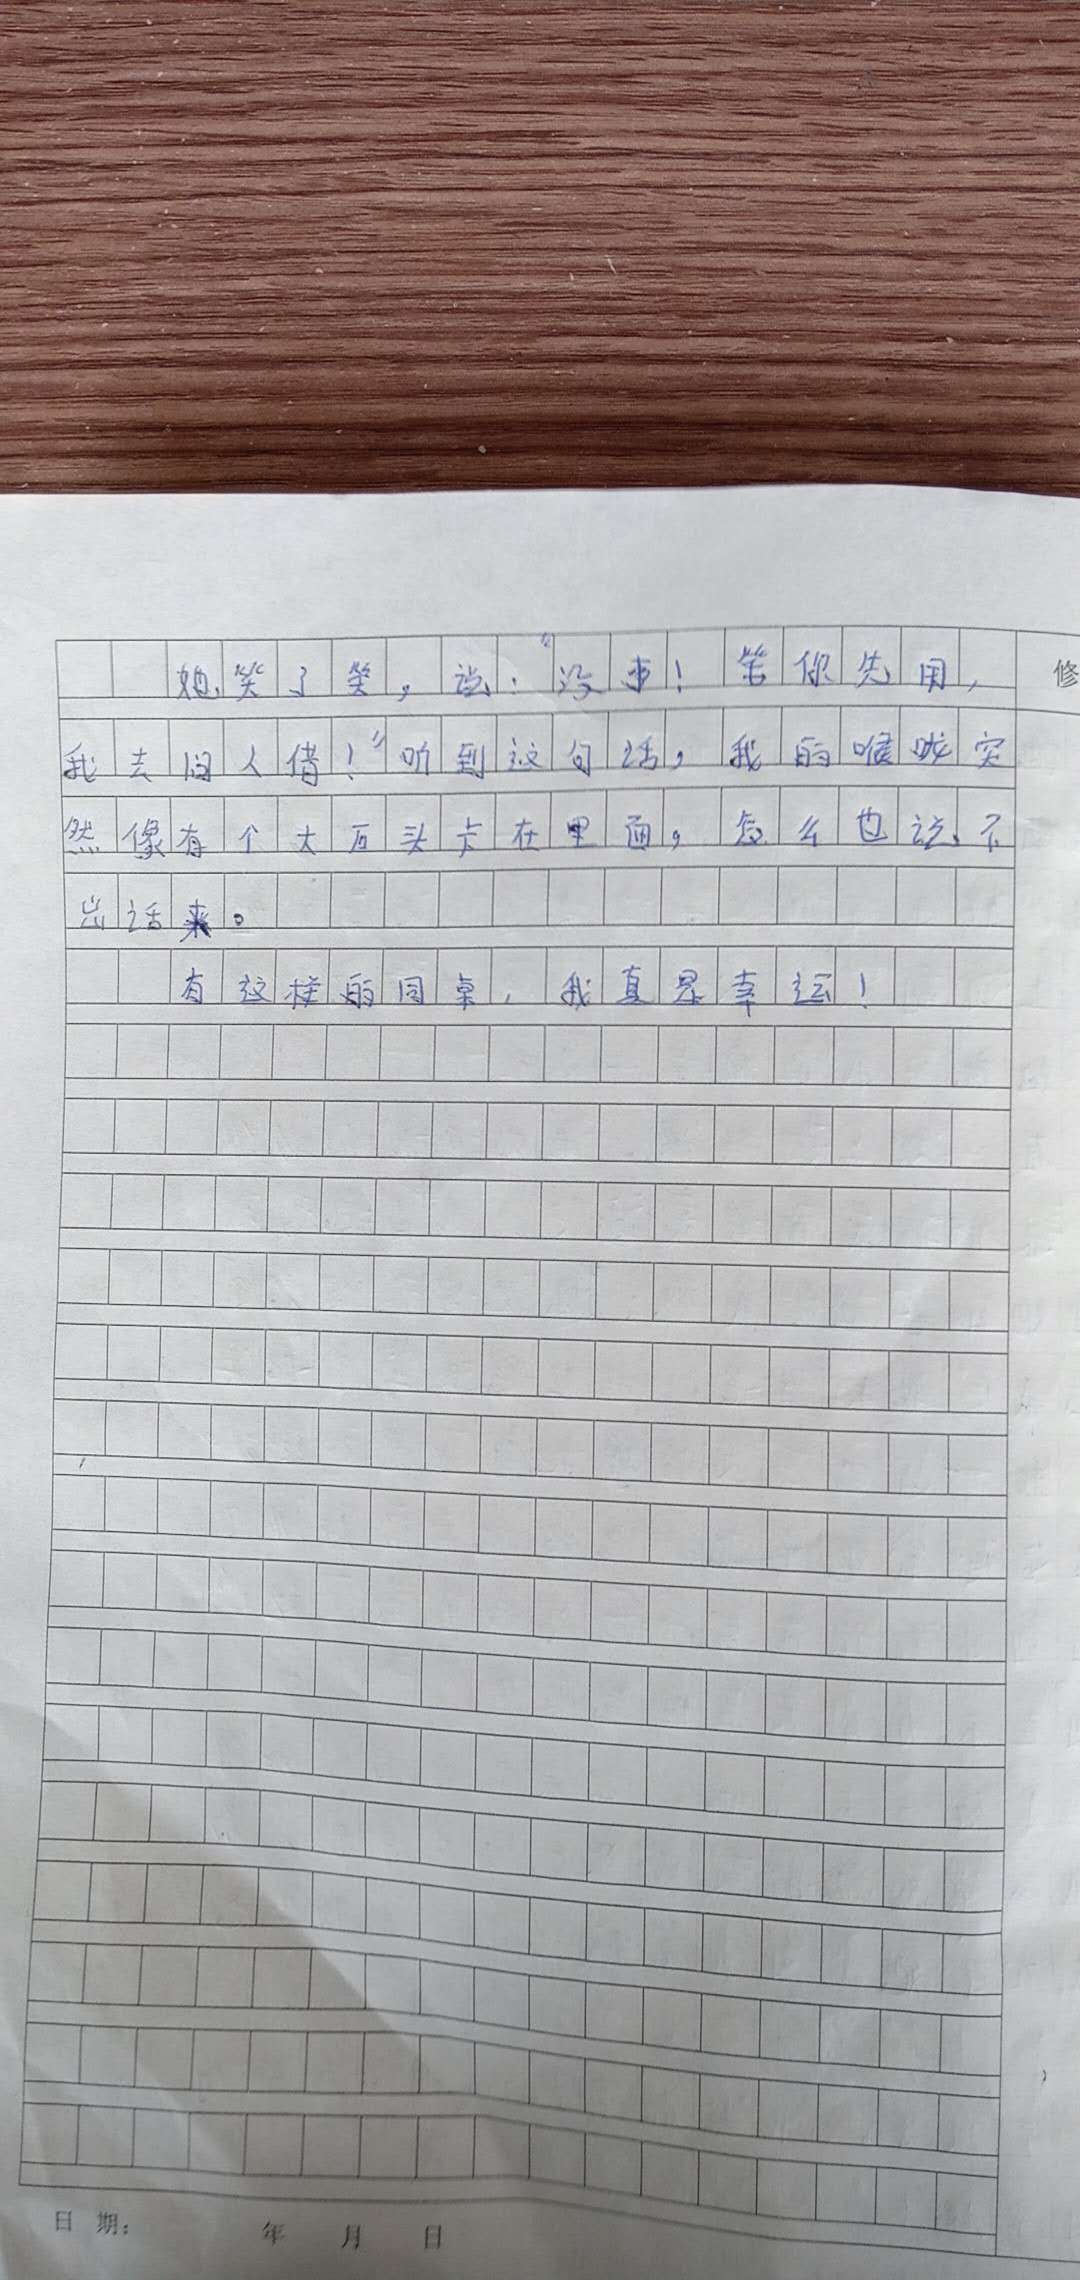 她笑了笑，说：“没事！笔你先用，
我去问人借！”听到这句话，我的喉咙突
然像有个大石头卡在里面，怎么也说不
出话来。
有这样的同桌，我真是幸运！
修
日 期： 年 月 日